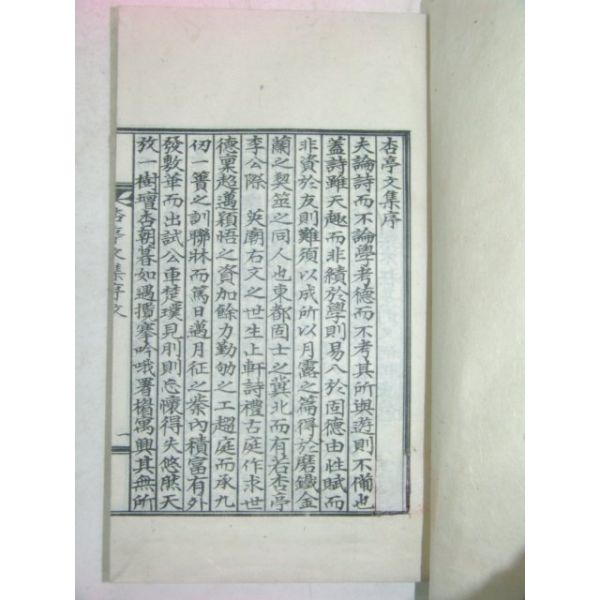 杏亭文集序
夫論詩而不論學考德而不考其所與遊則不備也
蓋詩雖天趣而非績於學則易入於固德由性賦而
非資於友則難須以成所以月露之篇得於磨鐵金
蘭之契筮之同人也東都固士之冀北而有若杏亭
李公際 英廟右文之世生止軒詩禮古庭作求世
德稟超邁穎悟之資加餘力勤劬之工趨庭而承九
仞一簣之訓聯牀而篤日邁月征之業內積富有外
發敷華而出試公車楚璞見刖則忘懷得失悠然天
放一樹壇杏朝暮如遇攬搴吟哦署楣寓興其無所
杏亭文集序文
一